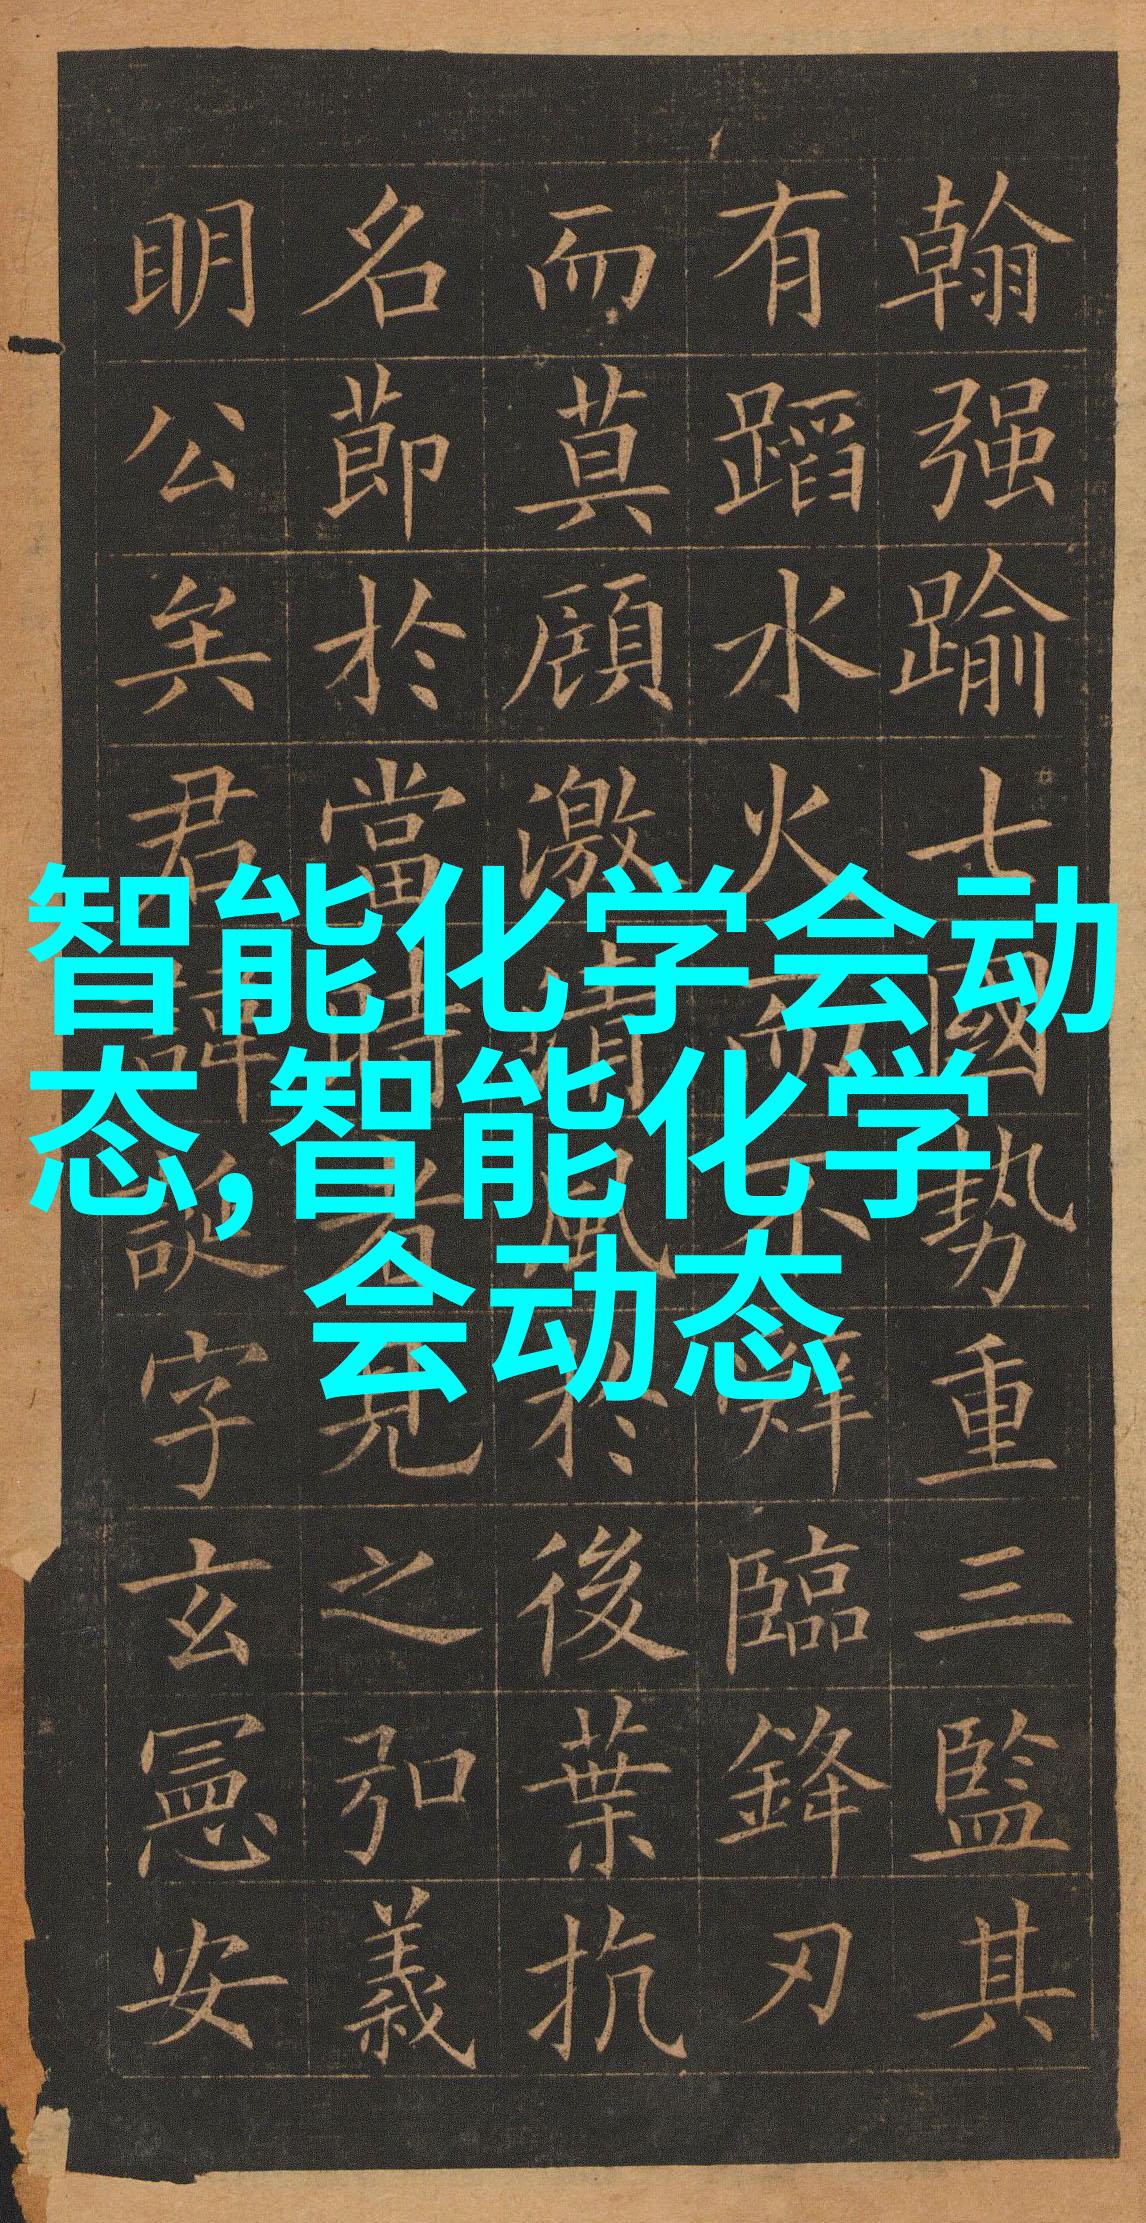 翰强踰七國勢重三監其
有蹈水火而不辭臨鋒刃
而莫顧激清風於後葉抗
名節於當時者見之弘義
明公矣君諱誕字玄憲安
智能化学会动
态,智能化学
会动态